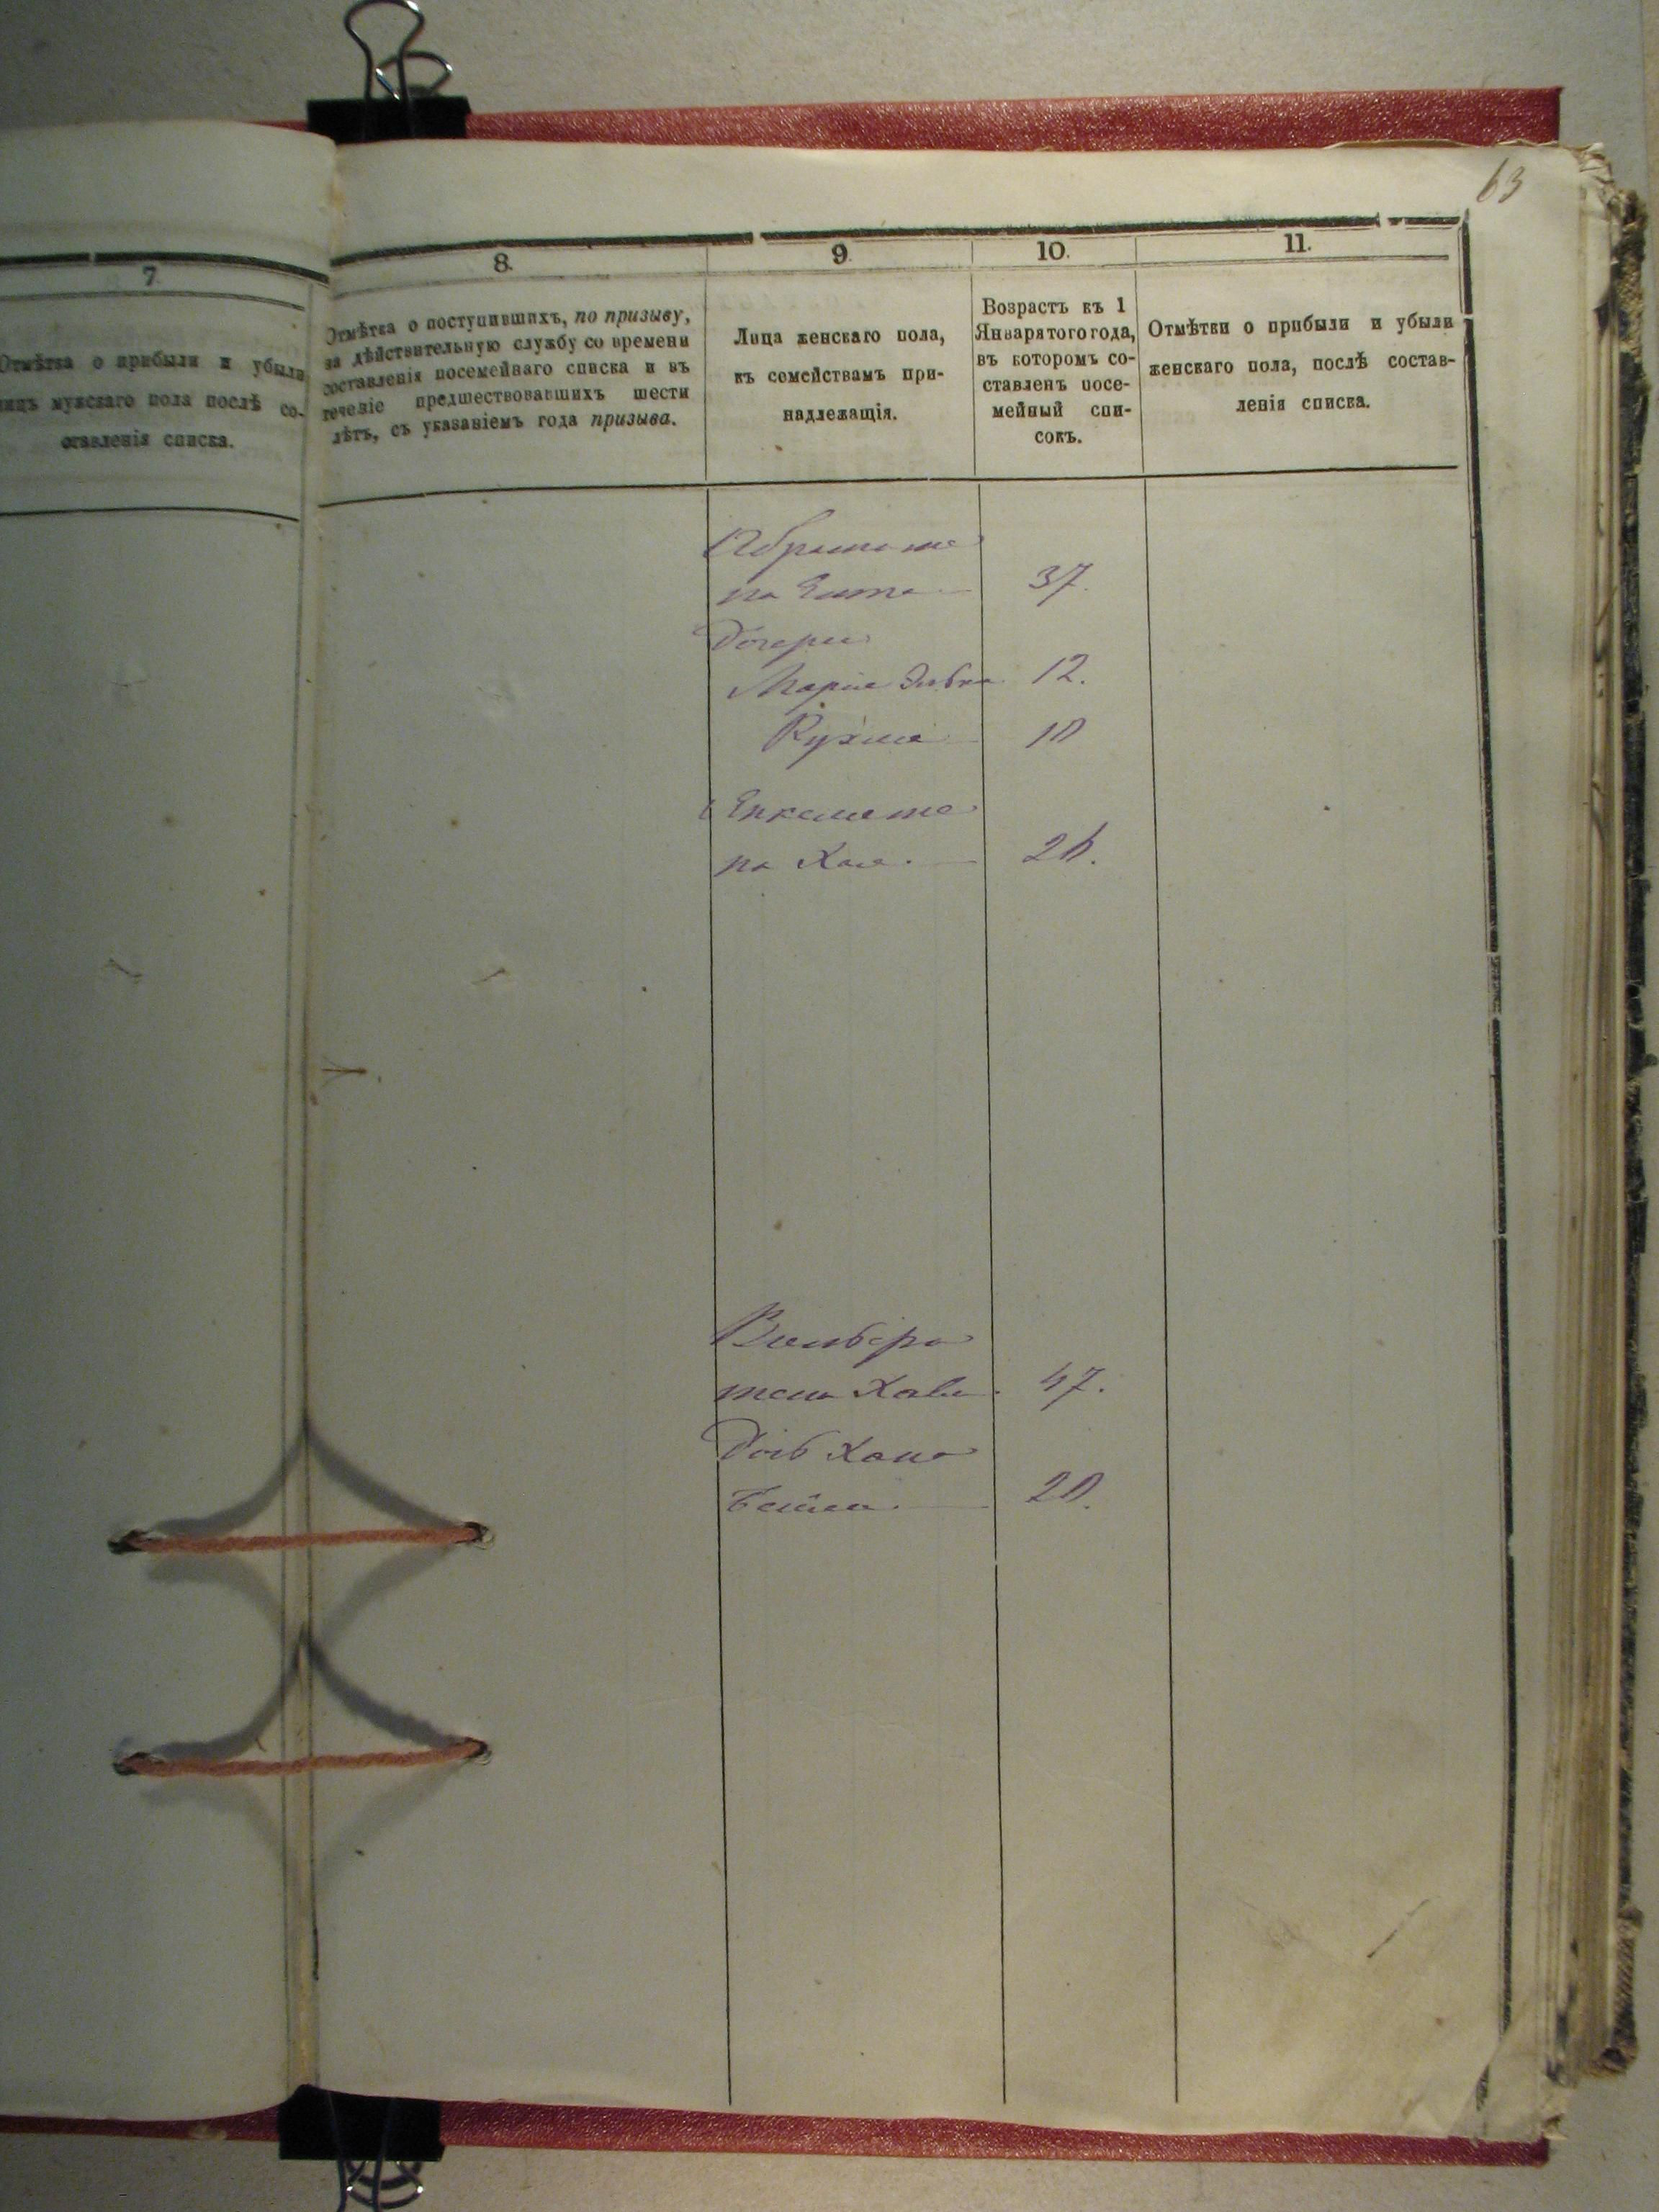 63
7
Отмѣтка о прибыли и убыли
лицъ мужскаго пола послѣ со-
ставленія списка.
8.
Отмѣтка о поступившихъ, по призыву,
на дѣйствительную службу со времени
составленія посемейнаго списка и въ
теченіе предшествовавшихъ шести
лѣтъ, съ указаніемъ года призыва.
9
Лица женскаго пола,
къ семействамъ при-
надлежащія.
10.
Возрастъ къ 1
Января того года,
въ которомъ со-
ставленъ посе-
мейный спи-
сокъ.
11.
Отмѣтки о прибыли и убыли
женскаго пола, послѣ состав-
ленія списка.
37.
Дочери
Марiя 12.
10
на Хая. 26.
47.
Дочь Хана
Бейла. 20.